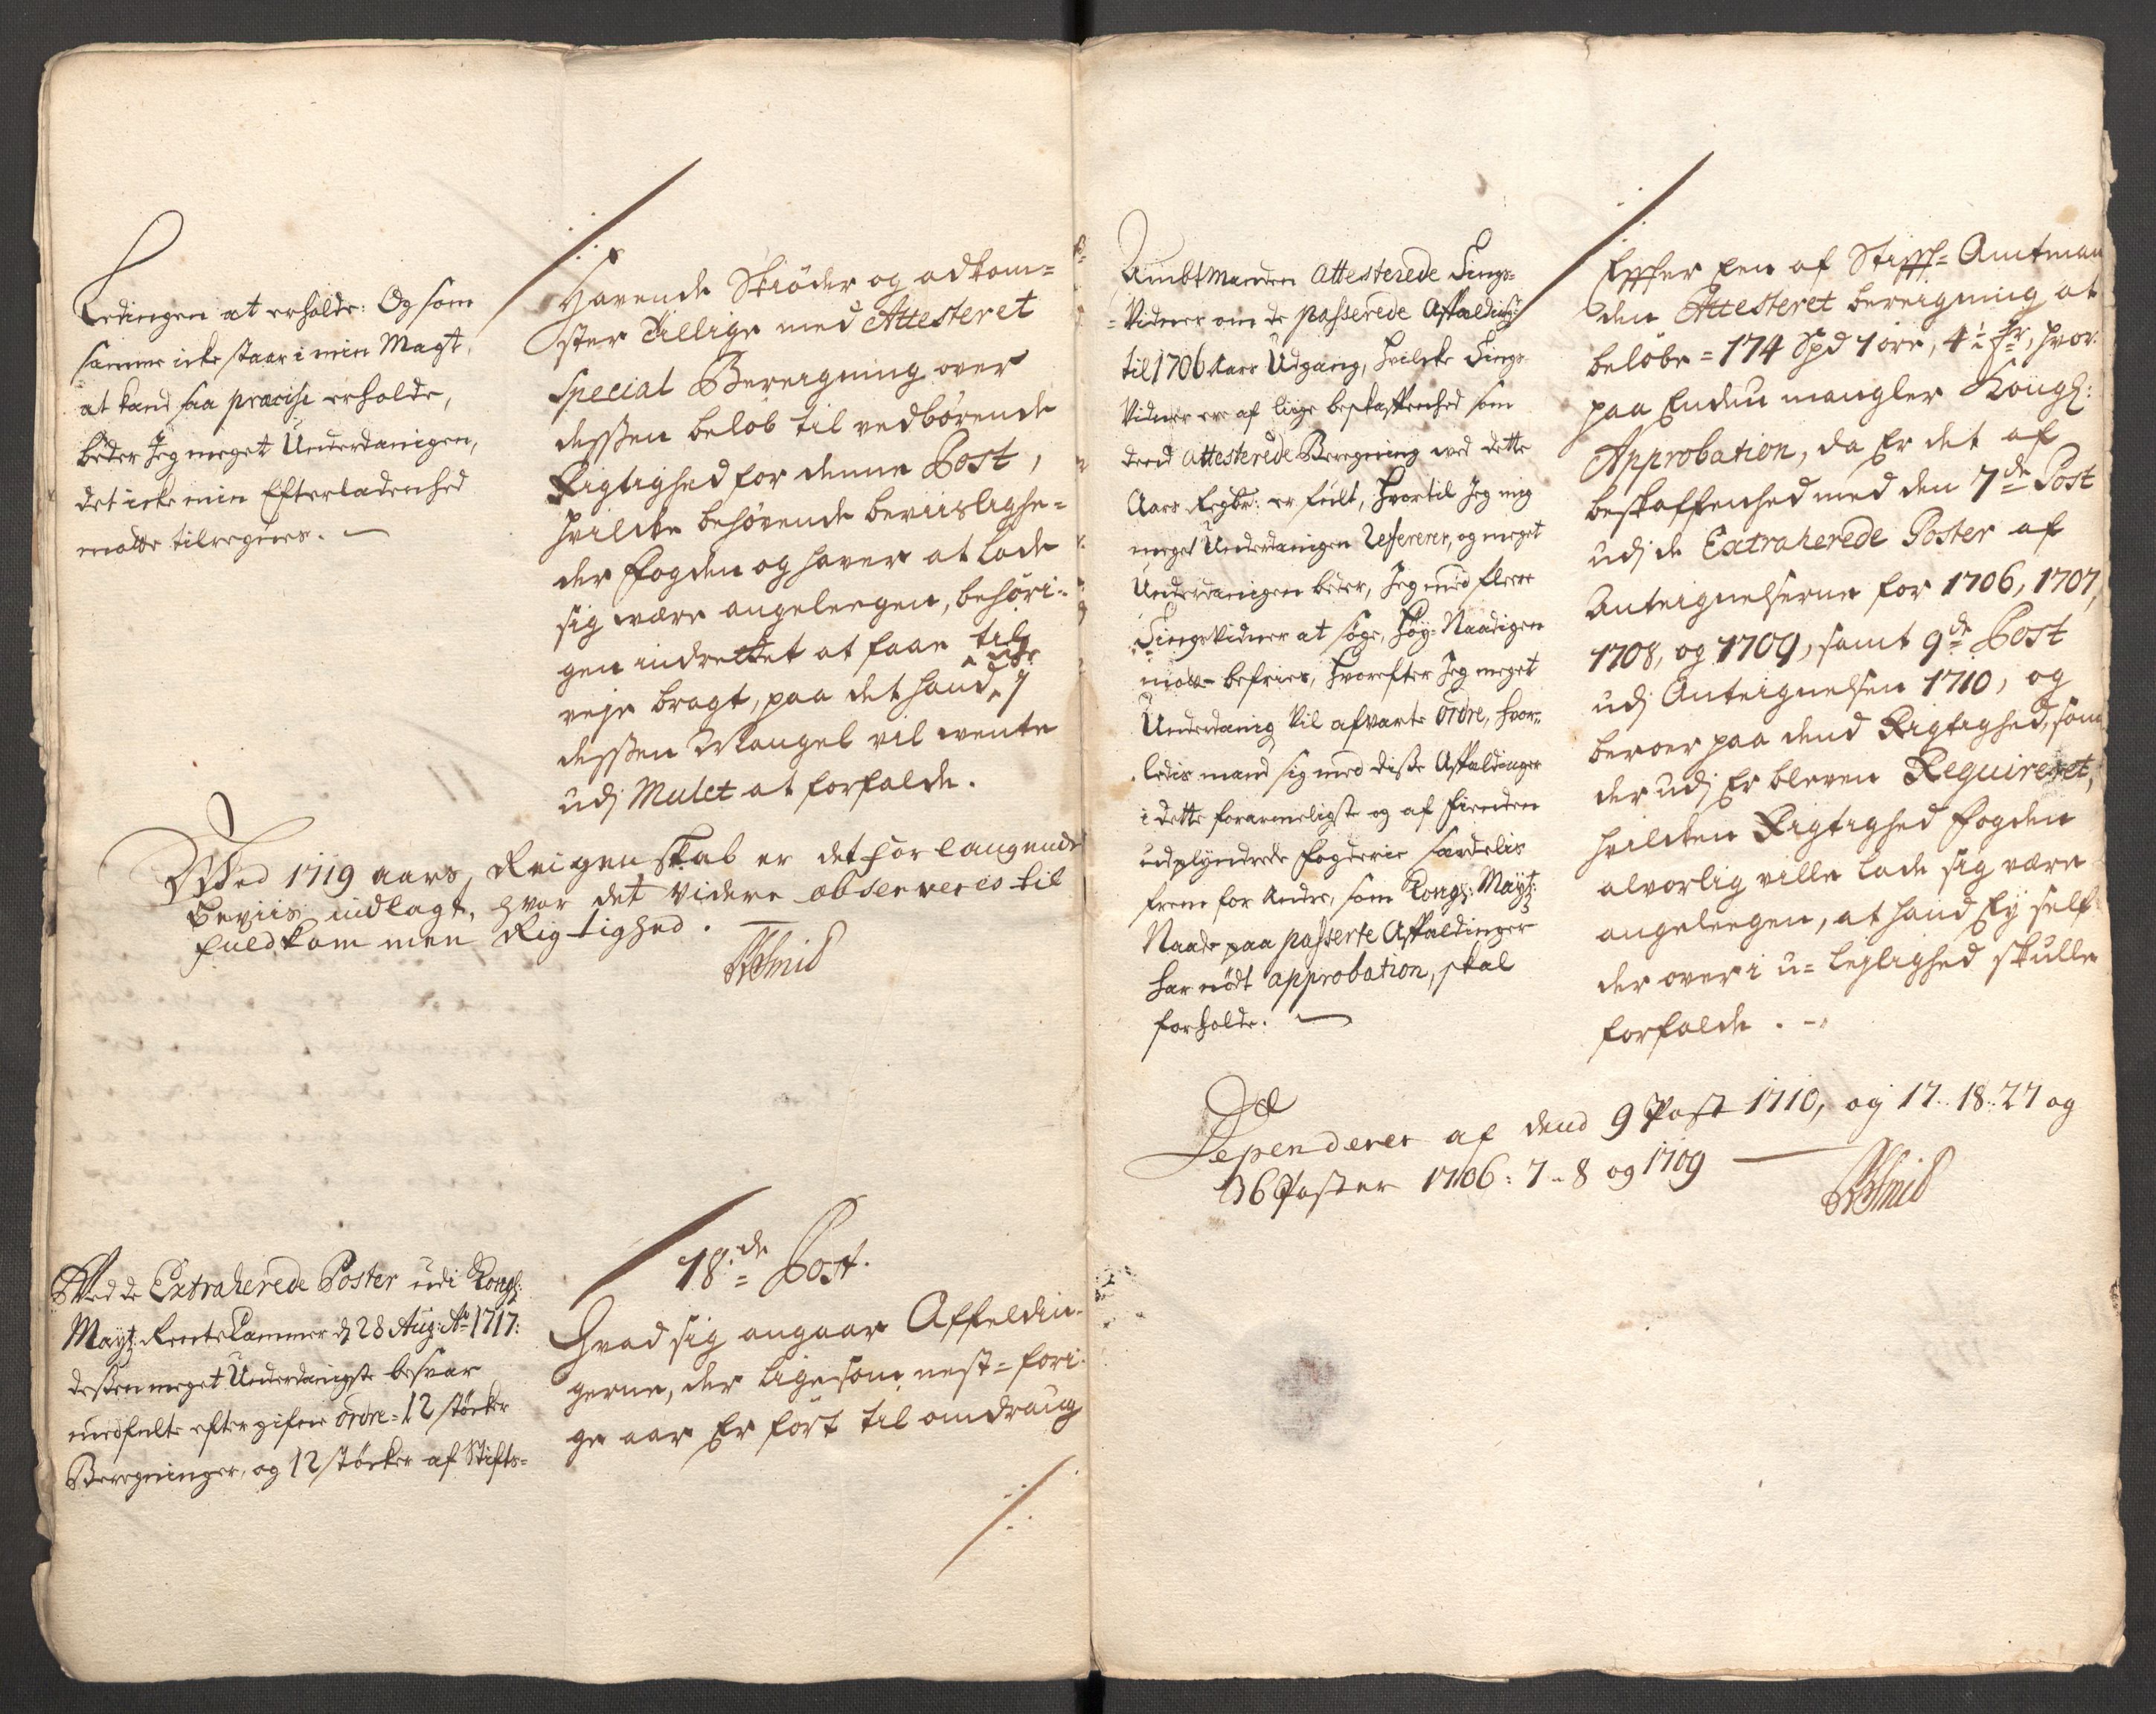 Ledingen at erholde: Og som
samme icke staar i min Magt,
at kand saa præcise erholde,
beder Jeg meget Underdanigen,
det icke min Efterladenhed
motte tilregnes.
Havende Skiöder og adkom-
ster Tillige med Attesteret
Special Bereigning over
dessen belöb til vedbörende
Rigtighed for denne Post,
hvilcke behörende beviislighe-
der Fogden og haver at lade
sig være angelegen, behöri-
gen indrettet at faae til
veje bragt, paa det hand ej ude
dessen Mangel vil vente
udj Mulct at forfalde.
Ved 1719 aars Reigenskab er det forlangende
Beviis indlagt, hvor det videre observeres til
fuldkommen Rigtighed.
Ved de Extraherede Poster udi Kongl:
Mayt: RenteCammer d 28 Aug: Ao 1717:
dessen meget Underdanigste besvar
medfulte efter gifne ordre 12 störcker
Beregninger, og 12 störcker af Stifts-
18de Post.
Hvad sig angaar Affeldin-
gerne, der ligesom nest-fori-
ge aar Er fört til omdraug
Ambtmanden attesterede Tings-
Vidner om de passerede Affelding:
til 1706 Aars Udgang, hvilcke Tings-
Vidner ere af liige beskaffenhed som
dend attesterede Beregning ved dette
Aars Regsk: er fölt, hvortil Jeg mig
meget Underdanigen Refererer, og meget
Underdanigen beder, Jeg med fleere
Tingsvidner at söge, höy-Naadigen
motte befries, hvorefter Jeg meget
Underdanig vil afvarte ordre, hvor-
ledis mand sig med disse Affeldinger
i dette forarmeligste og af Fienden
udplyndrede Fogderie særdelis
frem for Andre, som Kongl: Mayt:
Naade paa passerte Affeldinger
har nödt approbation, skal
forholde.
Effter Een af Stifft-Amtman
den Attesteret bereigning at
belöbe = 174 Spd 1 öre, 4½ , hvor-
paa Endnu mangler Kongl:
Approbation, da Er det af
beskaffenhed med den 7de Post
udj de Extraherede Poster af
Anteignelserne for 1706, 1707,
1708, og 1709, samt 9de Post
udj Anteignelsen 1710, og
beroer paa dend Rigtighed, som
der udj Er bleven Requireret,
hvilcken Rigtighed Fogden
alvorlig ville lade sig være
angelegen, at hand Ey self
der over i u-lejlighed skulle
forfalde.
Dependerer af dend 9 Post 1710, og 17. 18. 27 og
36 Poster 1706: 7-8 og 1709